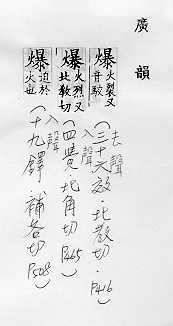 廣韻
爆火裂又音駮(去聲三十六效．北教切．P416)
爆火烈又北教切(入聲四覺．北角切P465)
爆迫於火也(入聲十九鐸．補各切P508)